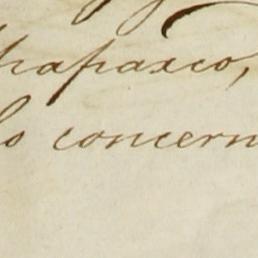 hapaxco,
lo concern